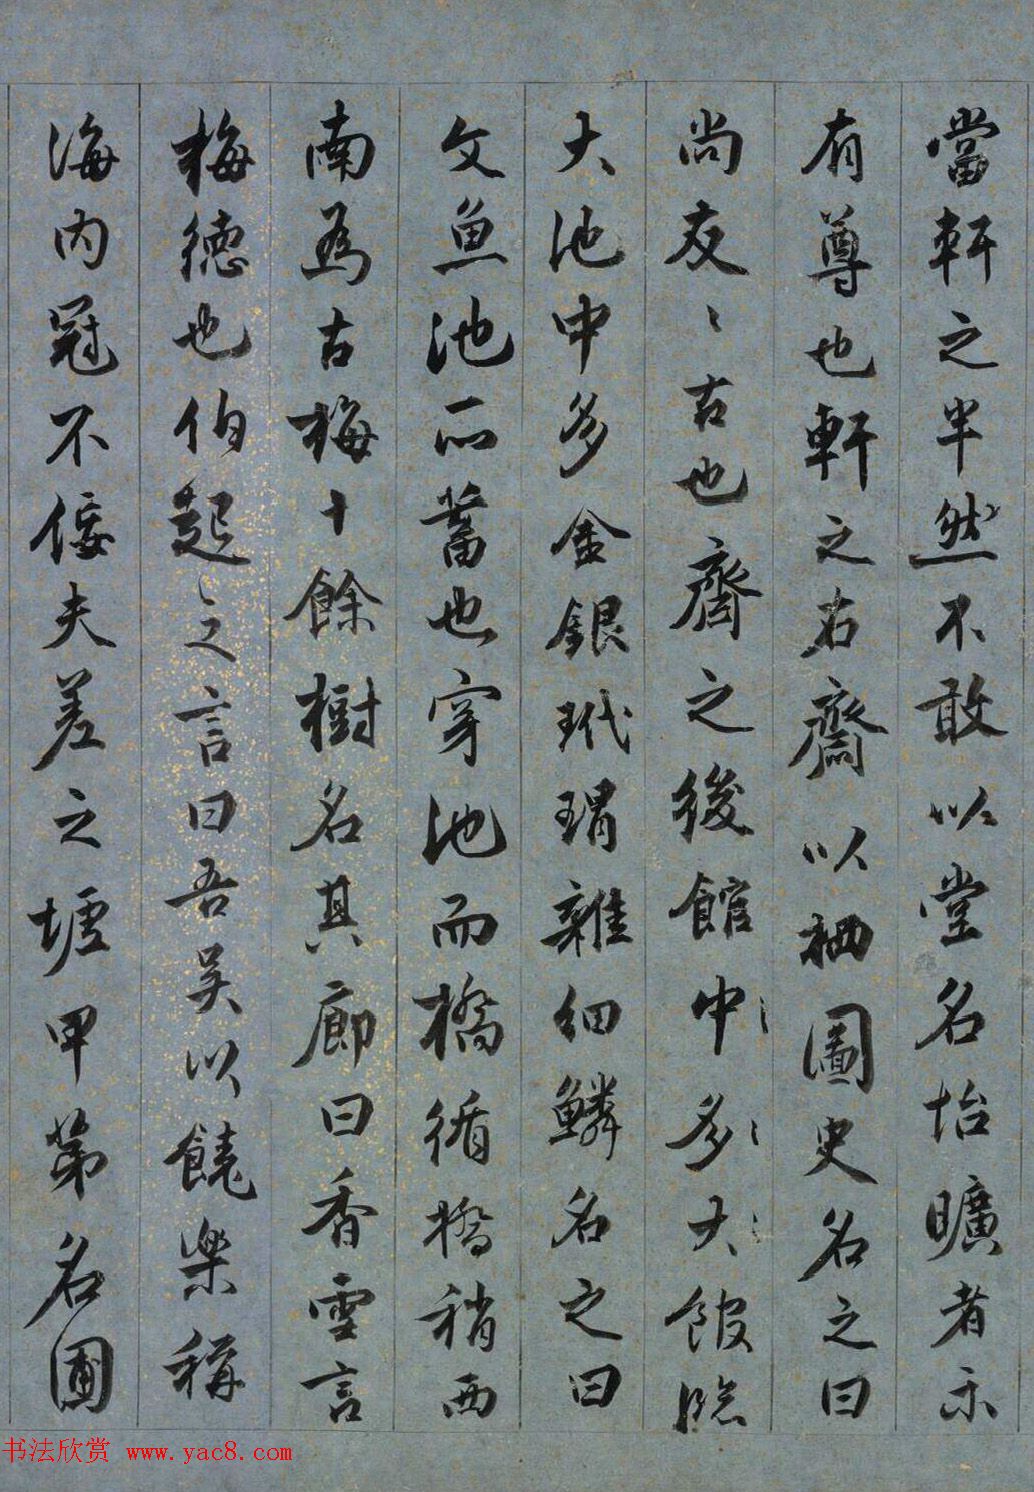 當軒之半然不敢以堂名怡曠者示
有尊也軒之右齋以栖圖史名之曰
尚友〻古也齋之後館中多大館臨
大池中多金銀玳瑁雜細鱗名之曰
文魚池所蓄也穿池而橋循橋稍西
南為古梅十餘樹名其廊曰香雪言
梅德也伯起之言曰吾吴以饒樂稱
海内冠不佞夫差之墟甲第名園
书法欣赏 www.yac8.com